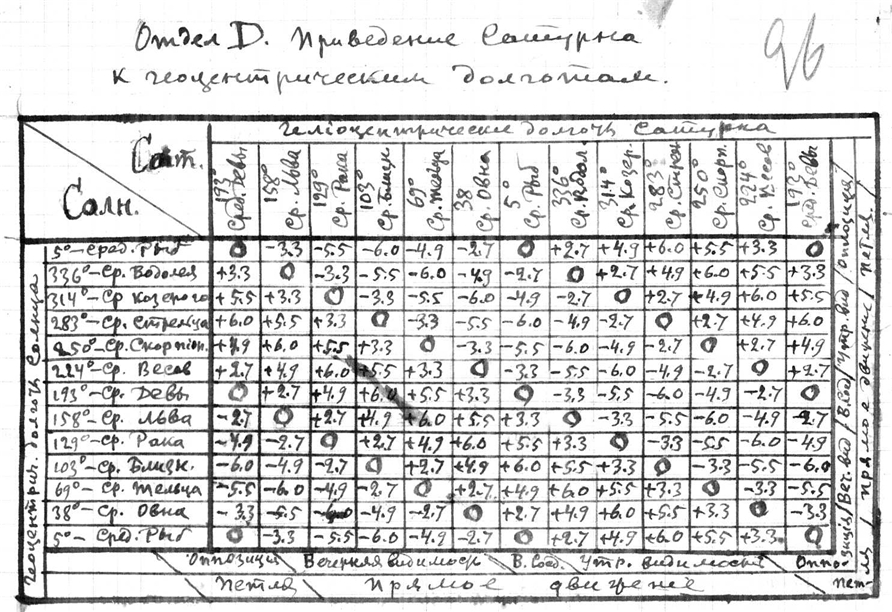 Отдел D. Приведение Сатурна
к геоцентрическим долготам.
96
Сат.
Солн.
Геліоцентрические долготы Сатурна
193° Сред. Девы
158° Ср. Льва
199° Ср. Рака
103° Ср. Близн.
69° Ср. Тельца
38 Ср. Овна
5° Ср. Рыб
336° Ср. Водол.
314° Ср. Козер.
283° Ср. Стрел.
250° Ср. Скорп.
224° Ср. Весов
193° Сред. Девы
Геоцентрич. долготы Солнца
5°–Сред. Рыб 0 -3.3 -5.5 -6.0 -4.9 -2.7 0 +2.7 +4.9 +6.0 +5.5 +3.3 0
336°–Ср. Водолея +3.3 0 -3.3 -5.5 -6.0 -4.9 -2.7 0 +2.7 +4.9 +6.0 +5.5 +3.3
314°–Ср Козерого +5.5 +3.3 0 -3.3 -5.5 -6.0 -4.9 -2.7 0 +2.7 +4.9 +6.0 +5.5
283°–Ср. Стрельца +6.0 +5.5 +3.3 0 -3.3 -5.5 -6.0 -4.9 -2.7 0 +2.7 +4.9 +6.0
250°–Ср. Скорпіон. +4.9 +6.0 +5.5 +3.3 0 -3.3 -5.5 -6.0 -4.9 -2.7 0 +2.7 +4.9
224°–Ср. Весов +2.7 +4.9 +6.0 +5.5 +3.3 0 -3.3 -5.5 -6.0 -4.9 -2.7 0 +2.7
193°–Ср. Девы 0 +2.7 +4.9 +6.0 +5.5 +3.3 0 -3.3 -5.5 -6.0 -4.9 -2.7 0
158°–Ср. Льва -2.7 0 +2.7 +4.9 +6.0 +5.5 +3.3 0 -3.3 -5.5 -6.0 -4.9 -2.7
129°–Ср. Рака -4.9 -2.7 0 +2.7 +4.9 +6.0 +5.5 +3.3 0 -3.3 -5.5 -6.0 -4.9
103°–Ср. Близн. -6.0 -4.9 -2.7 0 +2.7 +4.9 +6.0 +5.5 +3.3 0 -3.3 -5.5 -6.0
69°–Ср. Тельца -5.5 -6.0 -4.9 -2.7 0 +2.7 +4.9 +6.0 +5.5 +3.3 0 -3.3 -5.5
38°–Ср. Овна -3.3 -5.5 -6.0 -4.9 -2.7 0 +2.7 +4.9 +6.0 +5.5 +3.3 0 -3.3
5°–Сред. Рыб 0 -3.3 -5.5 -6.0 -4.9 -2.7 0 +2.7 +4.9 +6.0 +5.5 +3.3 0
Оппозиція / Вечерняя видимость / В. Соед. Утр. видимость / Оппо-
Петля / Прямое движение / Пет-
зиція / Веч. вид. / В. Соед / Утр. вид / Оппозиція /
ля / Прямое движение / Петля /